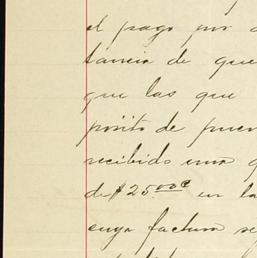 el pago por
tancia de que
que las que
pósito de
recibido una
de $25.00 en la
cuya factura se